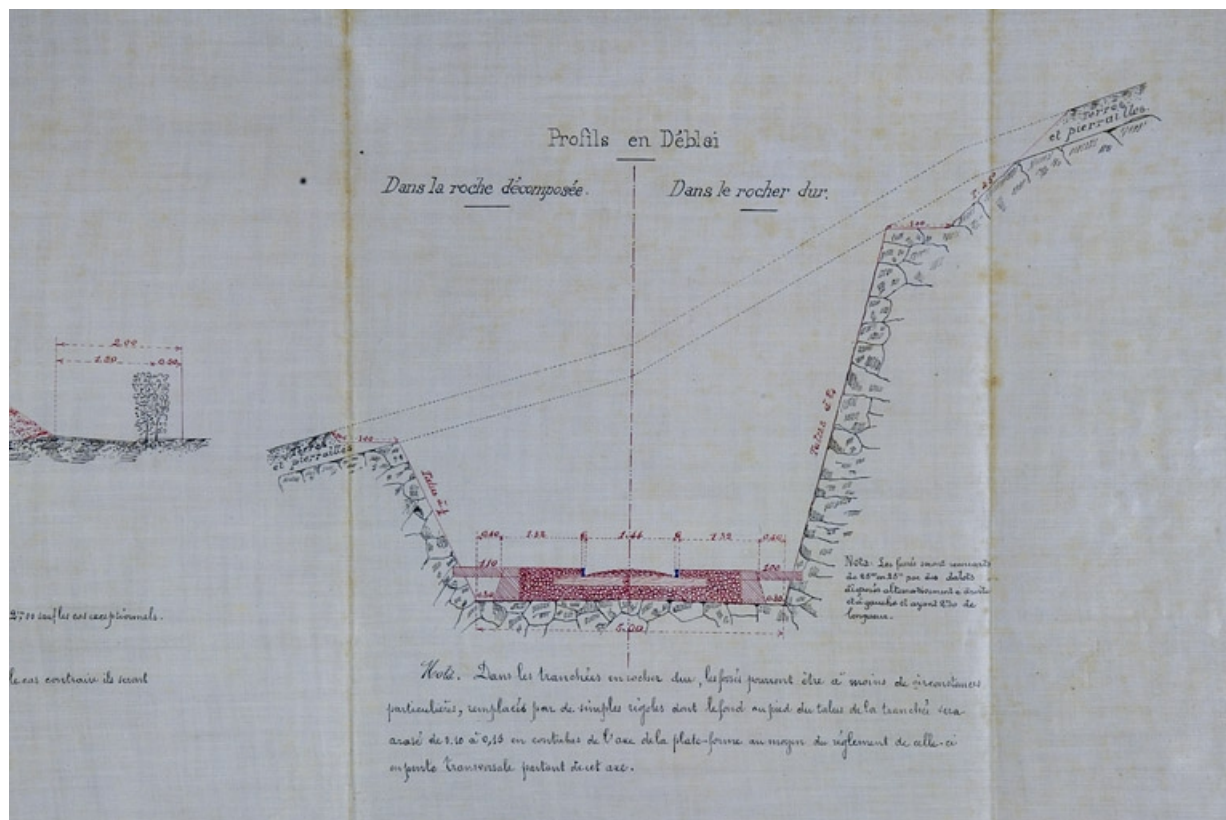 Profils en Déblai
Dans la roche décomposée.
Dans le rocher dur.
Terres
et pierrailles
1.00
2.00
1.50
0.50
Terres
et pierrailles
1.00
Talus à
Talus à
0.60
1.32
1.44
1.32
0.60
1.10
1.00
0.50
0.50
5.00
Nota: Les fossés seront
de 25m en 25m par des dalots
disposés alternativement à droite
et à gauche et ayant de
longueur.
2m00 sauf les cas exceptionnels.
le cas contraire ils seront
Nota. Dans les tranchées en rocher dur, les fossés pourront être à moins de circonstances
particulières, remplacés par de simples rigoles dont le fond au pied du talus de la tranchée sera
arasé de 0.10 à 0,15 en contrebas de l'axe de la plate-forme au moyen du réglement de celle-ci
en pente transversale partant de cet axe.